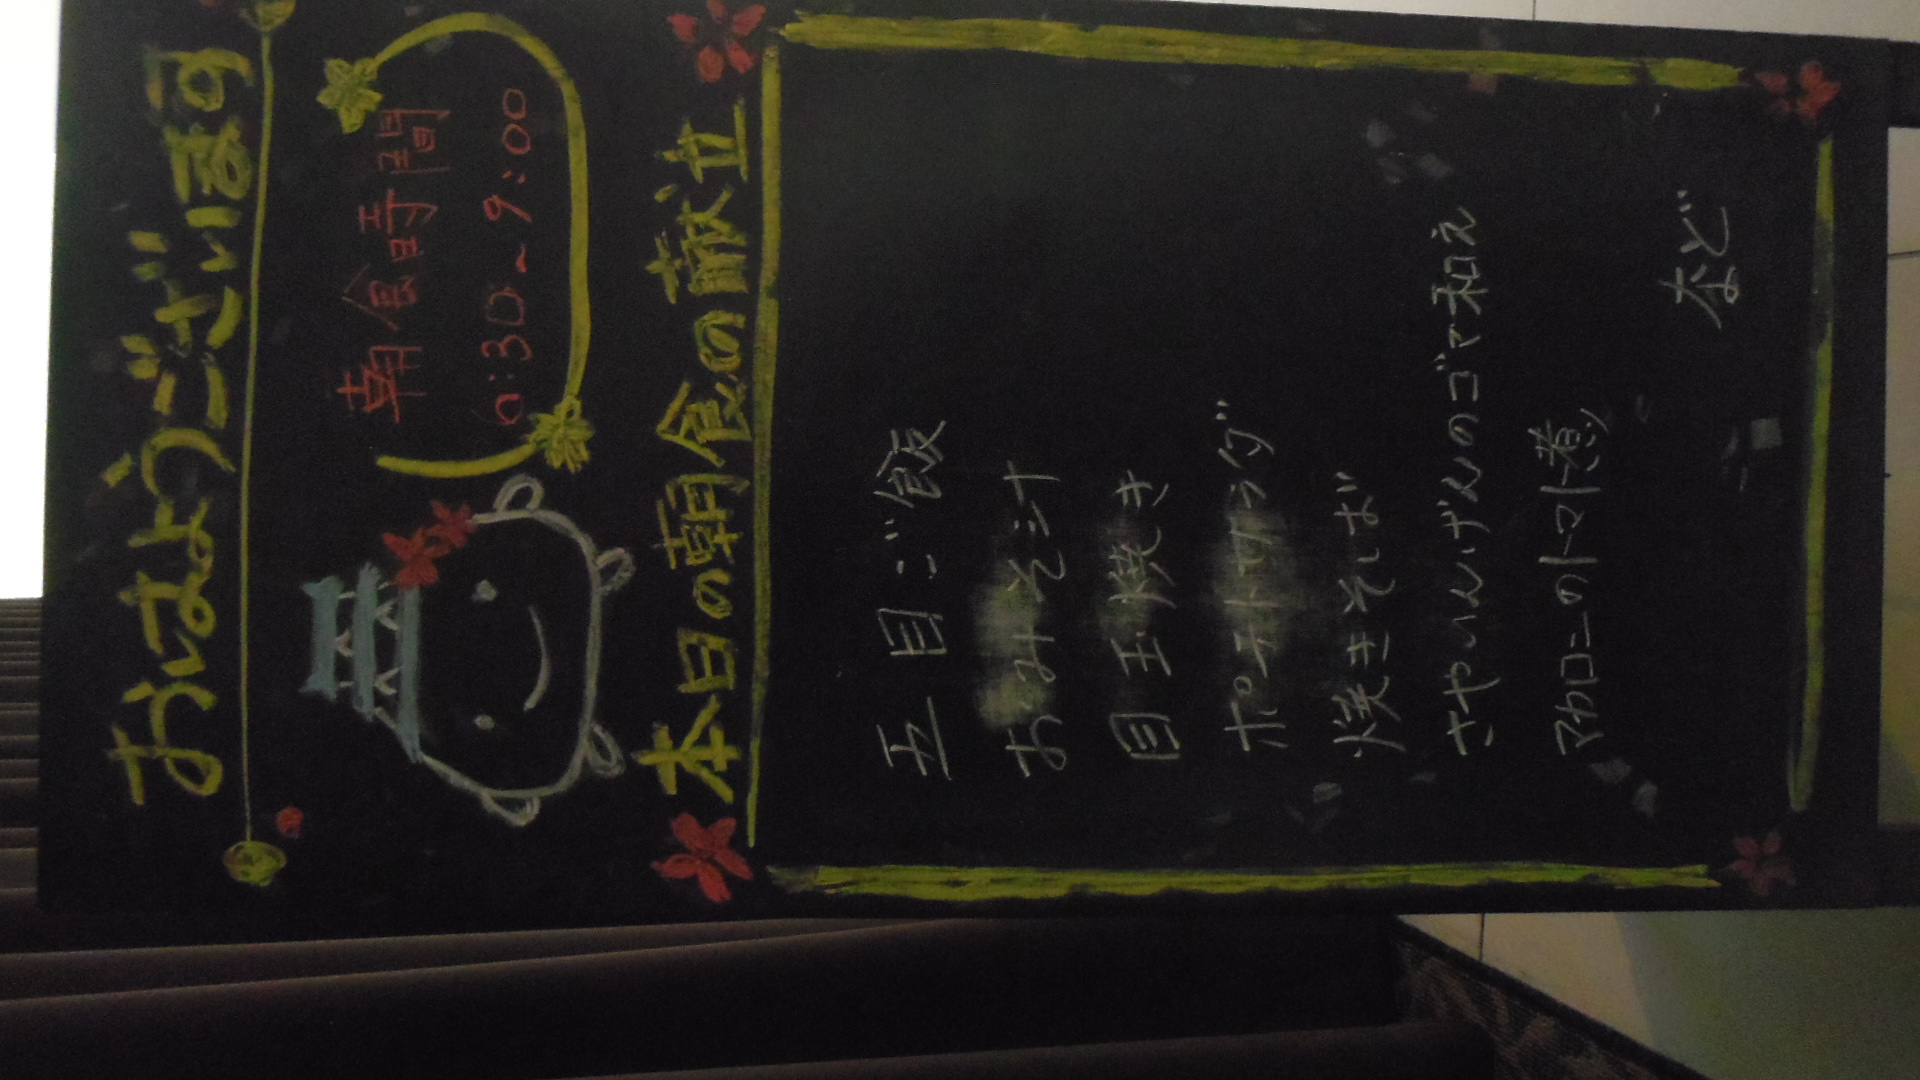 おはようございます
朝食時間
6:30~9:00
本日の朝食の献立
五目ご飯
おみそ汁
目玉焼き
ポテトサラダ
焼きそば
さやいんげんのゴマ和え
マカロニのトマト煮
など